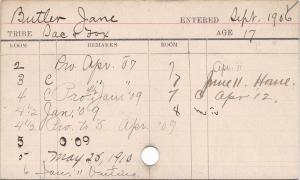 Butler Jane ENTERED Sept. 1906
TRIBE Sac & Fox AGE 17
ROOM REMARKS ROOM
2 Pro. Apr. '07 7 Apr. 11
3 C " " 7 June 11. Home.
4 C Program '09 7 C Apr 12.
4½ Jan. '09 8
4½ Pro. to 5 Apr. '09
5 0.09
5 May 25, 1910
6 Jan. 11